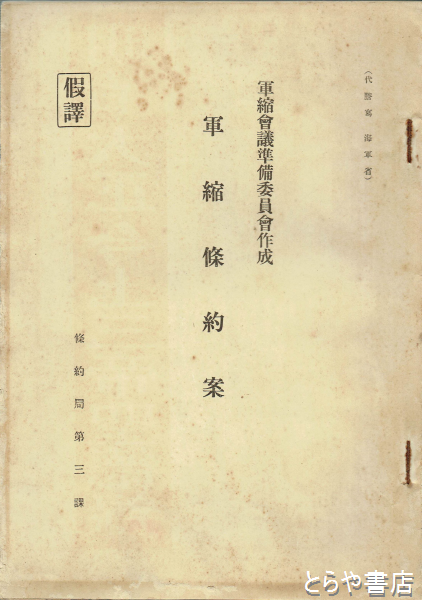 (代謄寫 海軍省)
軍縮會議準備委員會作成
軍縮條約案
假譯
條約局第三課
とらや書店